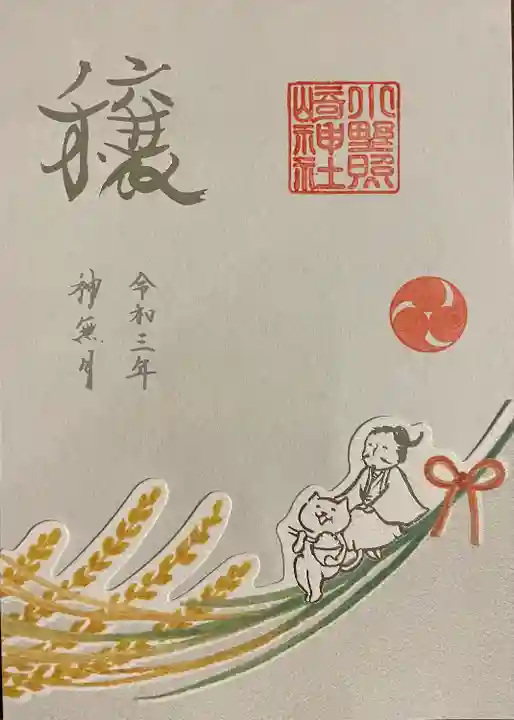 穣
小野照
崎神社
令和三年
神無月